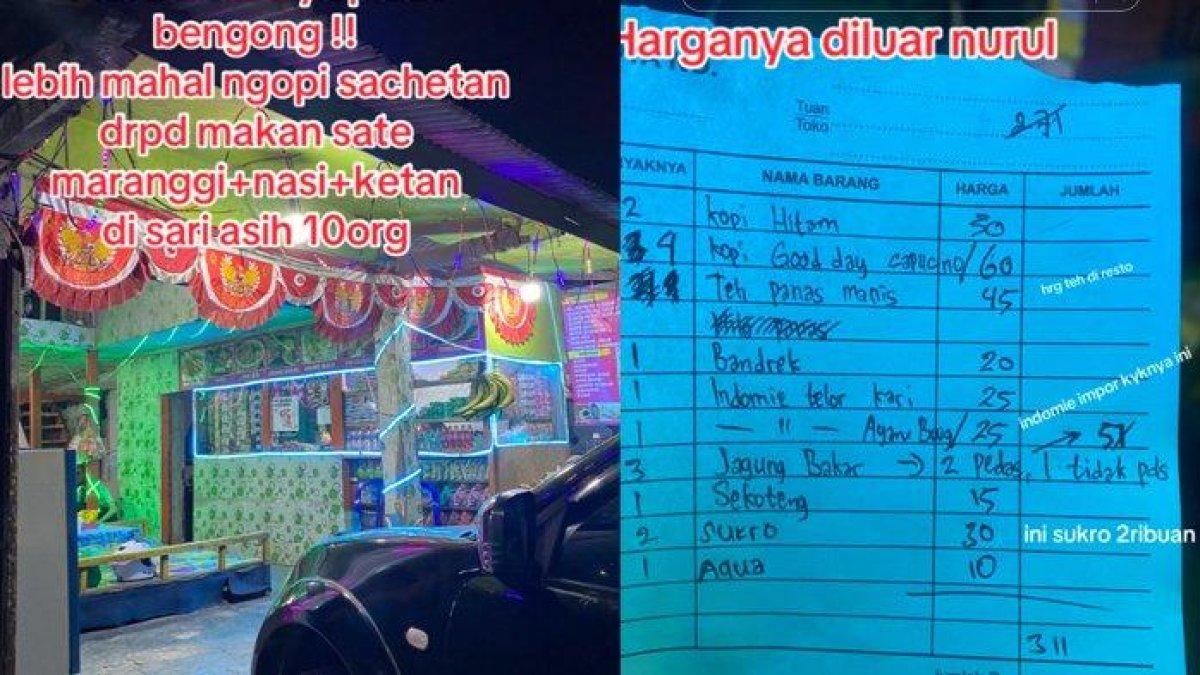 bengong !!
lebih mahal ngopi sachetan
drpd makan sate
maranggi+nasi+ketan
di sari asih 10org
Harganya diluar nurul
Tuan
Toko
271
YAKNYA NAMA BARANG HARGA JUMLAH
2 Kopi Hitam 30
4 Kopi Good day capucino/60
Teh panas manis 45 hrg teh di resto
1 Bandrek 20
1 Indomie telor kari 25 indomie impor kyknya ini
1 — " — Ayam Bwg/25
3 Jagung Bakar → 2 pedas, 1 tidak pds
1 Sekoteng 15
2 Sukro 30 ini sukro 2ribuan
1 Aqua 10
311